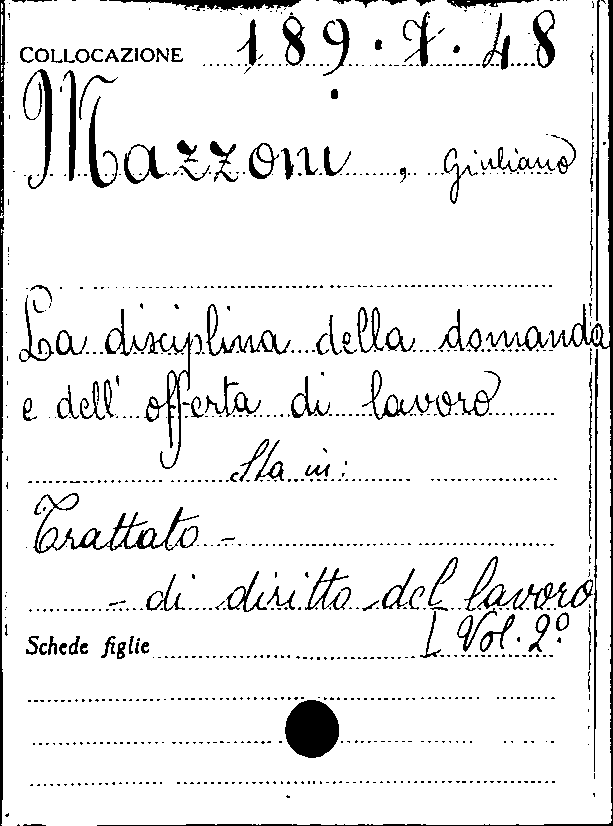 COLLOCAZIONE 189.7.48
Mazzoni, Giuliano
La disciplina della domanda
e dell'offerta di lavoro
Sta in:
Trattato -
- di diritto del lavoro
Schede figlie [ Vol. 2º